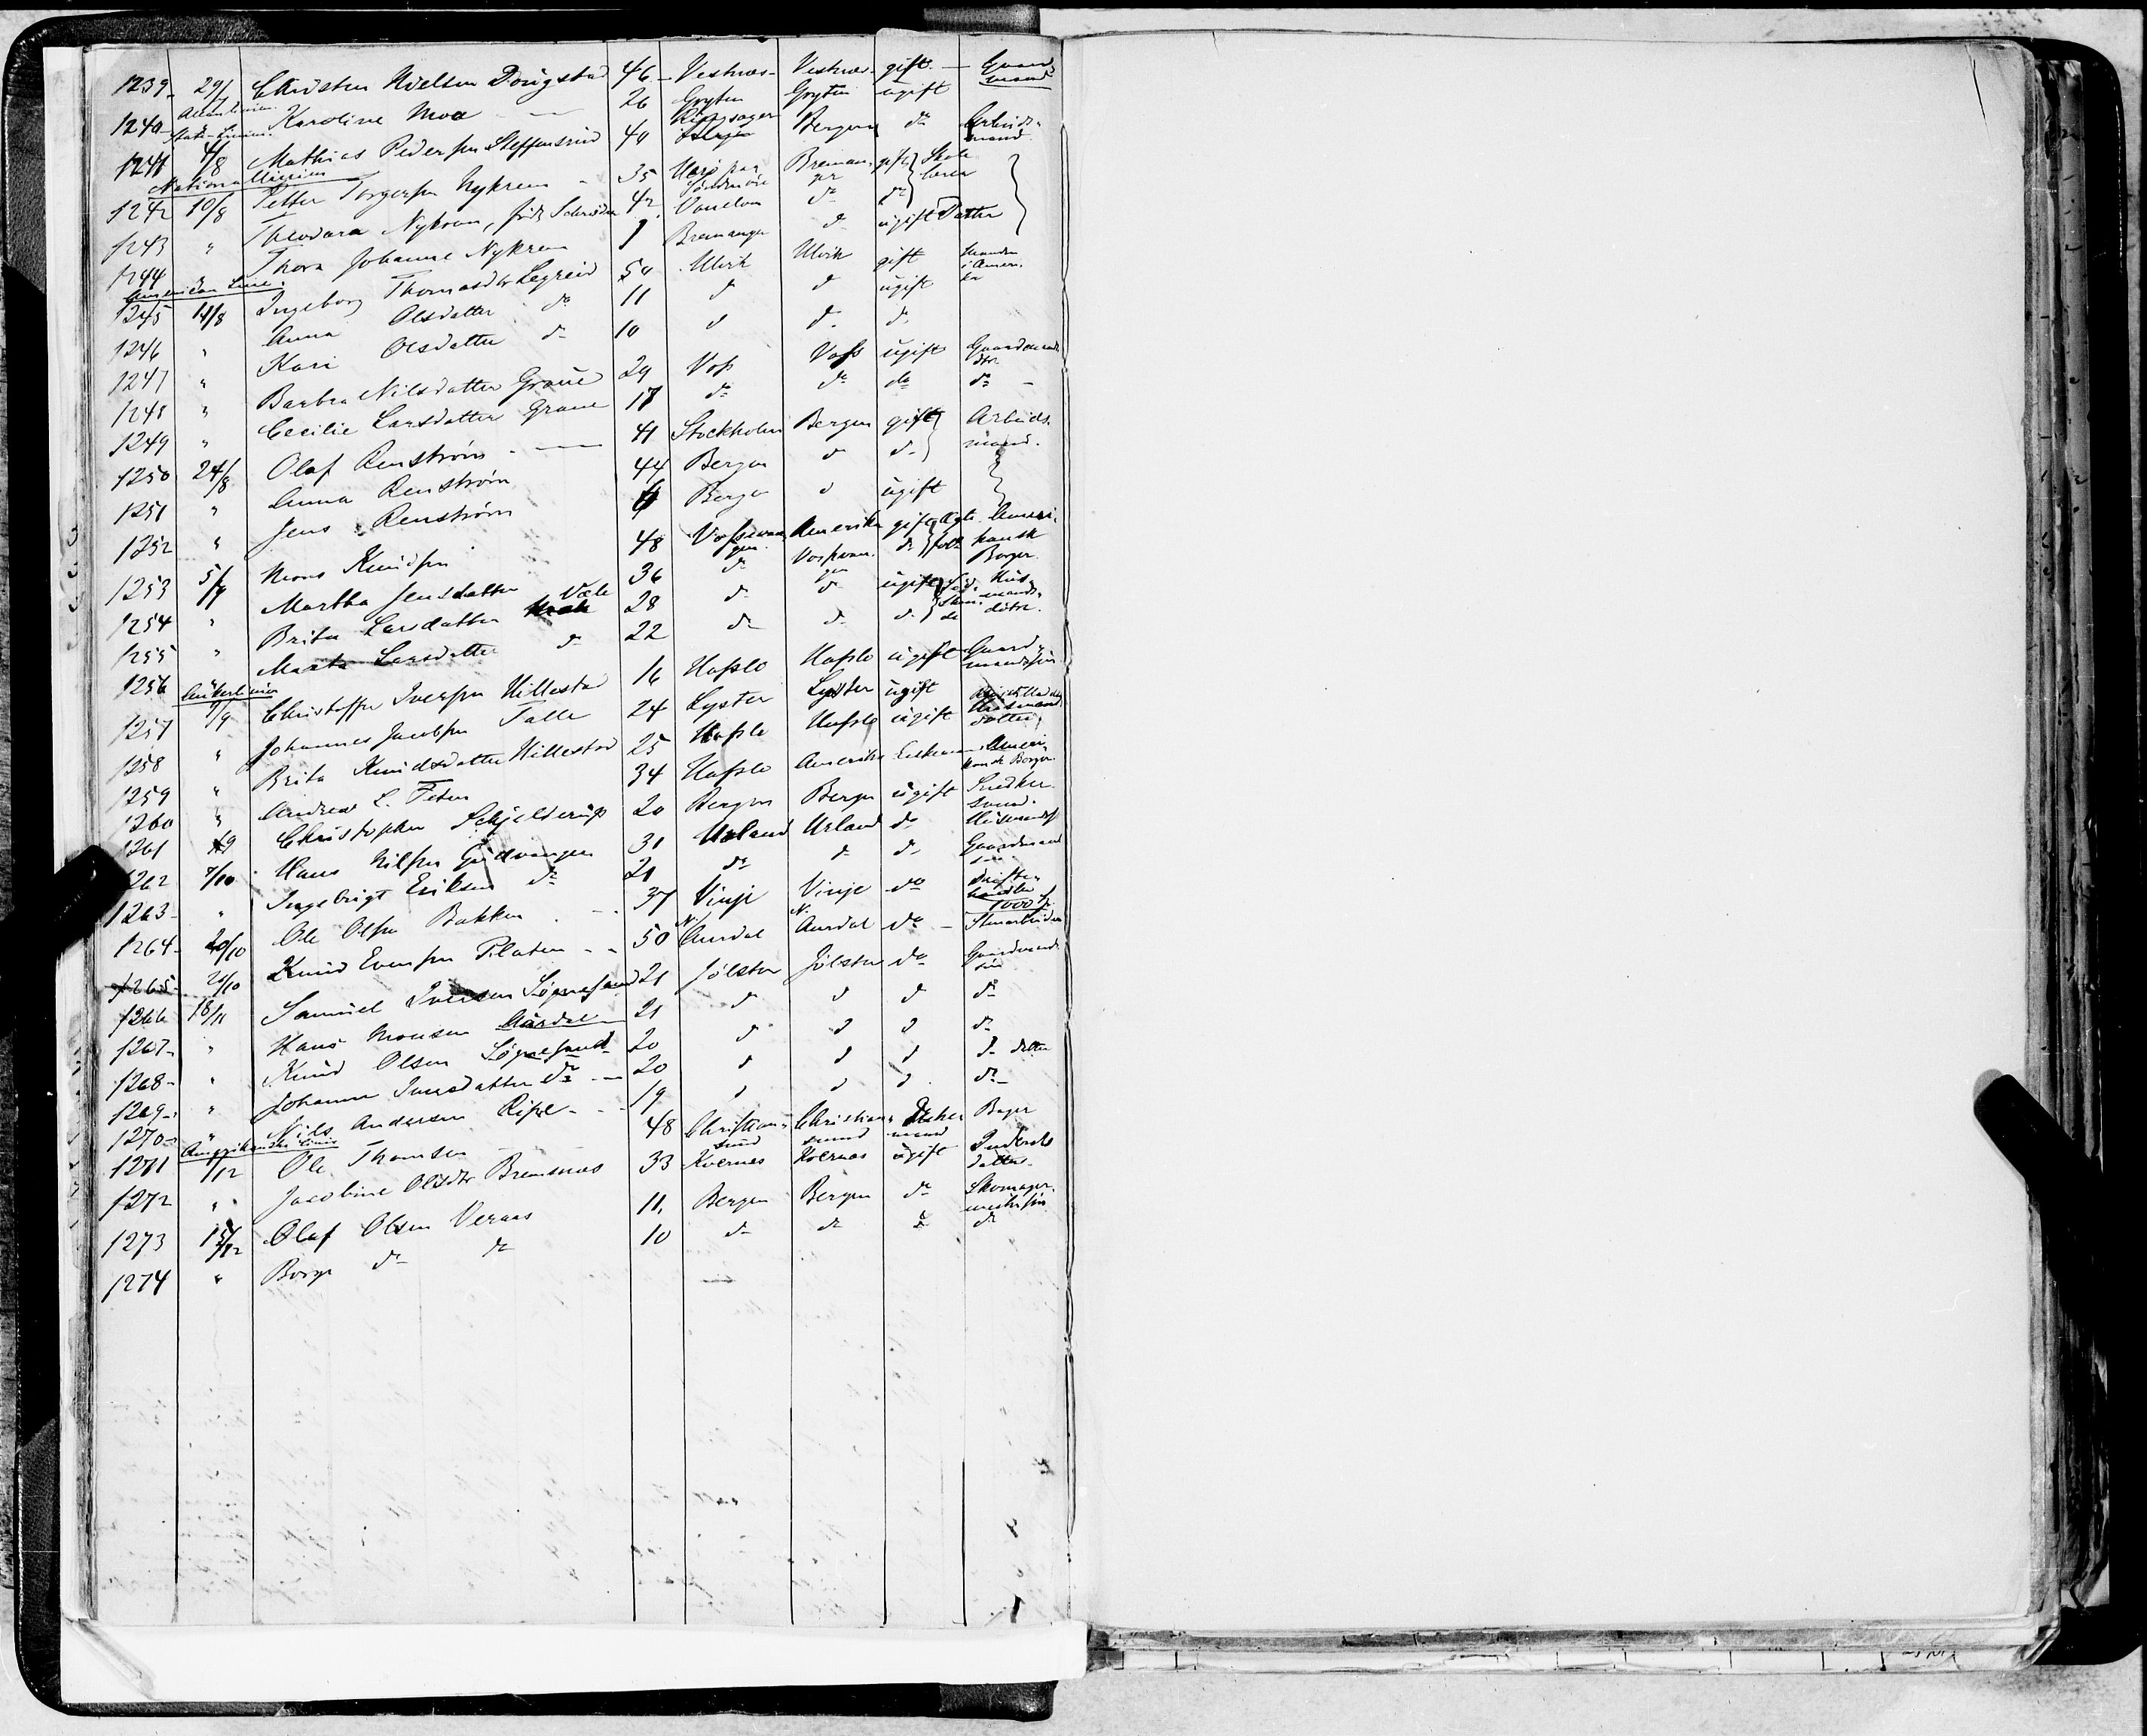 1239 29/ Christen Nielsen Dougstad 46 Vestnæs Vestnæs gift Gaardmand
Allanlinien
1240 Karoline Moa 26 Gryten Gryten ugift
State-Linien
1241 4/8 Mathias Pedersen Steffensrud 40 Ringsager Bergen do Arbeidsmand
National Linien
1242 10/8 Petter Torgersen Nykrem 35 Bremanger gift Skolelærer
1243 " Theodora Nykrem, født Schrøder 42 do do
1244 " Thora Johanne Nykrem 1 Bremanger do ugift Datter
American Line
1245 14/8 Ingeborg Thomasdr Legreid 50 Ulvik Ulvik gift Manden i Amerika
1246 " Anna Olsdatter do 11 do do ugift
1247 " Kari Olsdatter do 10 do do do
1248 " Barbra Nilsdatter Graue 29 Voss Voss ugift Gaardmands dtr
1249 " Cecilie Larsdatter Graue 18 do do do do
1250 24/8 Olaf Renstrøm 41 Stockholm Bergen gift Arbeidsmand
1251 " Anna Renstrøm 44 Bergen do do
1252 " Jens Renstrøm Bergen do ugift
1253 5/9 Mons Knudsen 48 Vossevangen Amerika gift Ægtefolk Amerikansk Borger
1254 " Martha Jensdatter 36 do Vossevangen do
1255 " Brita Larsdatter 28 do do ugift Husmandsdøtre
1256 " Marta Larsdatter do 22 do do do
Ankerlinien
1257 7/9 Christoffer Iversen Hillestad 16 Hafslo Hafslo ugift Gaardmandssøn
1258 " Johannes Jacobsen Talle 24 Lyster Lyster ugift
1259 " Brita Knudsdatter Hillestad 25 Hafslo Hafslo ugift Husmandsdatter
1260 " Andrew L. Feten 34 Hafslo Amerika Enkemand Amerikansk Borger
1261 Christopher Schjelderup 20 Bergen Bergen ugift Snedkersvend
1262 7/10 Hans Nilsen Gudvangen 31 Urland Urland do
1263 " Ingebrigt Eriksen do 21 do do do Gaardmands
1264 20/10 Ole Olsen Bakken 37 Vinje Vinje do 1000
1265 21/10 Knud Evensen Platen 50 N. Aurdal N. Aurdal do Stenarbeider
1266 18/11 Samuel Iversen Søgnesand 21 Jølster Jølster do Gaardmands søn
1267 " Hans Monsen Aardal 21 do do do do
1268 " Knud Olsen Søgnesand 20 do do do do
1269 " Johanne Iversdatter do 20 do do do do datter
1270 " Nils Andersen Ripe 19 do do do do
Amerikanske Linie
1271 1/12 Ole Thomsen 48 Christiansund Christiansund Enkemand Bager
1272 " Jacobine Olsdtr Bremsnæs 33 Kvernes Kvernes ugift
1273 15/12 Olaf Olsen Veraas 11 Bergen Bergen do Skomagermestersøn
1274 " Borge do do 10 do do do do